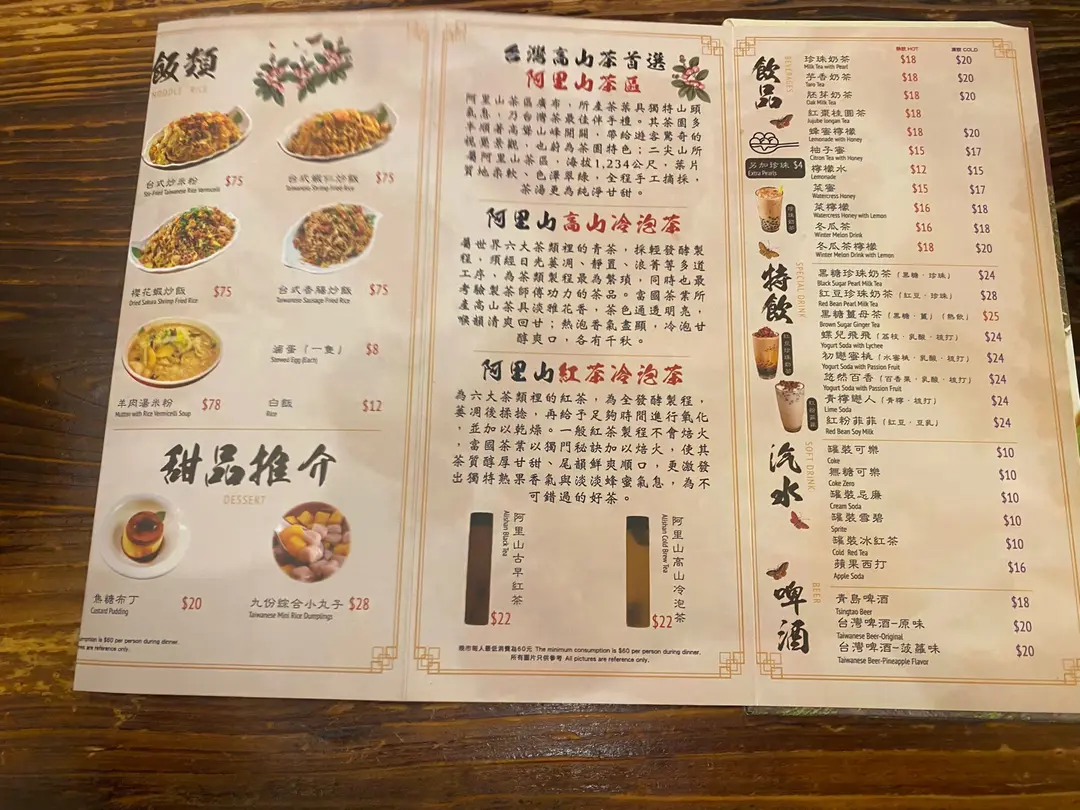 飯類
NOODLE RICE
台式炒米粉 $75
Stir-Fried Taiwanese Rice Vermicelli
台式蝦仁炒飯 $75
Taiwanese Shrimp Fried Rice
櫻花蝦炒飯 $75
Dried Sakura Shrimp Fried Rice
台式香腸炒飯 $75
Taiwanese Sausage Fried Rice
羊肉湯米粉 $78
Mutton with Rice Vermicelli Soup
滷蛋(一隻) $8
Stewed Egg (Each)
白飯 $12
Rice
甜品推介
DESSERT
焦糖布丁 $20
Custard Pudding
九份綜合小丸子 $28
Taiwanese Mini Rice Dumplings
consumption is $60 per person during dinner.
are reference only.
台灣高山茶首選
阿里山茶區
阿里山茶區廣布,所產茶葉具獨特山頭
氣息,乃台灣茶最佳伴手禮。其茶園多
半順著高聳山峰開闢,帶給遊客驚奇的
視覺景觀,也蔚為茶園特色;二尖山所
屬阿里山茶區,海拔1,234公尺,葉片
質地柔軟、色澤翠綠,全程手工摘採,
茶湯更為純淨甘甜。
阿里山高山冷泡茶
屬世界六大茶類裡的青茶,採輕發酵製
程,須經日光萎凋、靜置、浪菁等多道
工序,為茶類製程最為繁瑣,同時也最
考驗製茶師傅功力的茶品。富國茶業所
產高山茶具淡雅花香,茶色通透明亮,
喉韻清爽回甘;熱泡香氣盡顯,冷泡甘
醇爽口,各有千秋。
阿里山紅茶冷泡茶
為六大茶類裡的紅茶,為全發酵製程,
萎凋後揉捻,再給予足夠時間進行氧化
,並加以乾燥。一般紅茶製程不會焙火
,富國茶業以獨門秘訣加以焙火,使其
茶質醇厚甘甜、尾韻鮮爽順口,更激發
出獨特熟果香氣與淡淡蜂蜜氣息,為不
可錯過的好茶。
阿里山古早紅茶
Alishan Black Tea
$22
阿里山高山冷泡茶
Alishan Cold Brew Tea
$22
晚市每人最低消費為60元 The minimum consumption is $60 per person during dinner.
所有圖片只供參考 All pictures are reference only.
飲品
BEVERAGES
熱飲 HOT 凍飲 COLD
珍珠奶茶 $18 $20
Milk Tea with Pearl
芋香奶茶 $18 $20
Taro Tea
胚芽奶茶 $18 $20
Oak Milk Tea
紅棗桂圓茶 $18
Jujube longan Tea
蜂蜜檸檬 $18 $20
Lemonade with Honey
柚子蜜 $15 $17
Citron Tea with Honey
檸檬水 $12 $15
Lemonade
菜蜜 $15 $17
Watercress Honey
菜檸檬 $16 $18
Watercress Honey with Lemon
冬瓜茶 $16 $18
Winter Melon Drink
冬瓜茶檸檬 $18 $20
Winter Melon Drink with Lemon
另加珍珠 $4
Extra Pearls
珍珠奶茶
特飲
SPECIAL DRINK
黑糖珍珠奶茶(黑糖·珍珠) $24
Black Sugar Pearl Milk Tea
紅豆珍珠奶茶(紅豆·珍珠) $28
Red Bean Pearl Milk Tea
黑糖薑母茶(黑糖·薑)(熱飲) $25
Brown Sugar Ginger Tea
蝶兒飛飛(荔枝·乳酸·梳打) $24
Yogurt Soda with Lychee
初戀蜜桃(水蜜桃·乳酸·梳打) $24
Yogurt Soda with Passion Fruit
悠然百香(百香果·乳酸·梳打) $24
Yogurt Soda with Passion Fruit
青檸戀人(青檸·梳打) $24
Lime Soda
紅粉菲菲(紅豆·豆乳) $24
Red Bean Soy Milk
紅豆珍珠奶茶
紅粉菲菲
汽水
SOFT DRINK
罐裝可樂 $10
Coke
無糖可樂 $10
Coke Zero
罐裝忌廉 $10
Cream Soda
罐裝雪碧 $10
Sprite
罐裝冰紅茶 $10
Cold Red Tea
蘋果西打 $16
Apple Soda
啤酒
BEER
青島啤酒 $18
Tsingtao Beer
台灣啤酒-原味 $20
Taiwanese Beer-Original
台灣啤酒-菠蘿味 $20
Taiwanese Beer-Pineapple Flavor